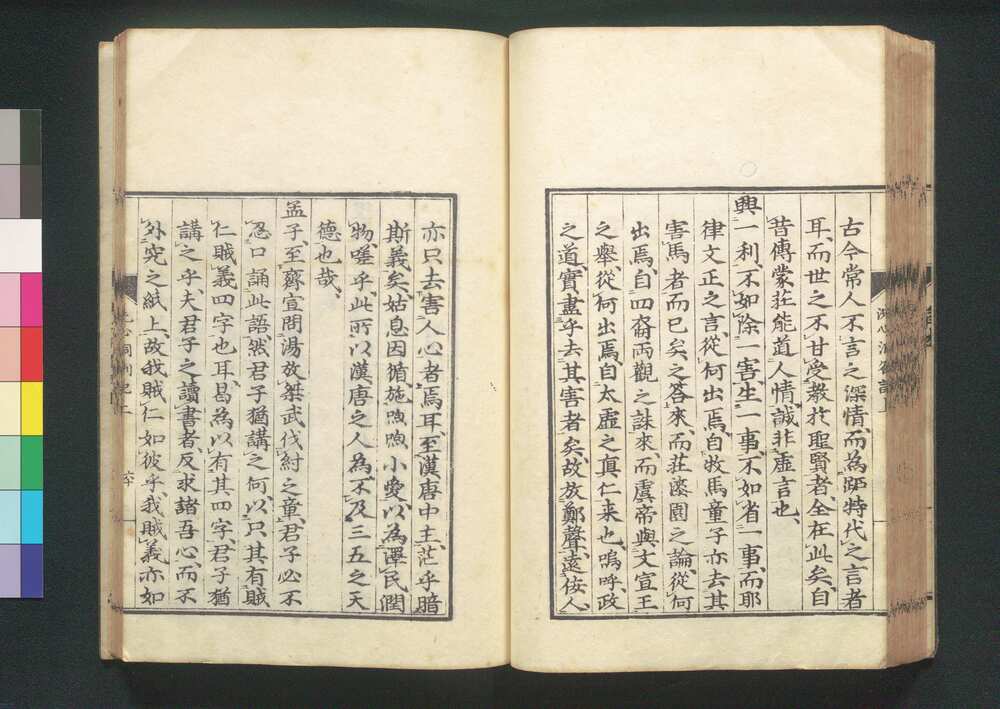 古今常人不言之深情而為跖特代之言者
耳而世之不甘受教於聖賢者全在此矣自
昔傳蒙莊能道人情誠非虛言也
興一利不如除一害生一事不如省一事而耶
律文正之言從何出焉自牧馬童子亦去其
害馬者而已矣之答來而莊漆園之論從何
出焉自四裔兩觀之誅來而虞帝與文宣王
之舉從何出焉自太虛之真仁来也嗚呼政
之道實盡乎去其害者矣故放鄭聲遠佞人
亦只去害人心者焉耳至漢唐中主茫乎暗
斯義矣姑息因循施煦煦小愛以為澤民潤
物嗟乎此所以漢唐之人為不及三五之天
德也哉
孟子至齊宣問湯放桀武伐紂之章君子必不
忍口誦此語然君子猶講之何以只其有賊
仁賊義四字也耳曷為以有其四字君子猶
講之乎夫君子之讀書者反求諸吾心而不
外究之紙上故我賊仁如彼乎我賊義亦如